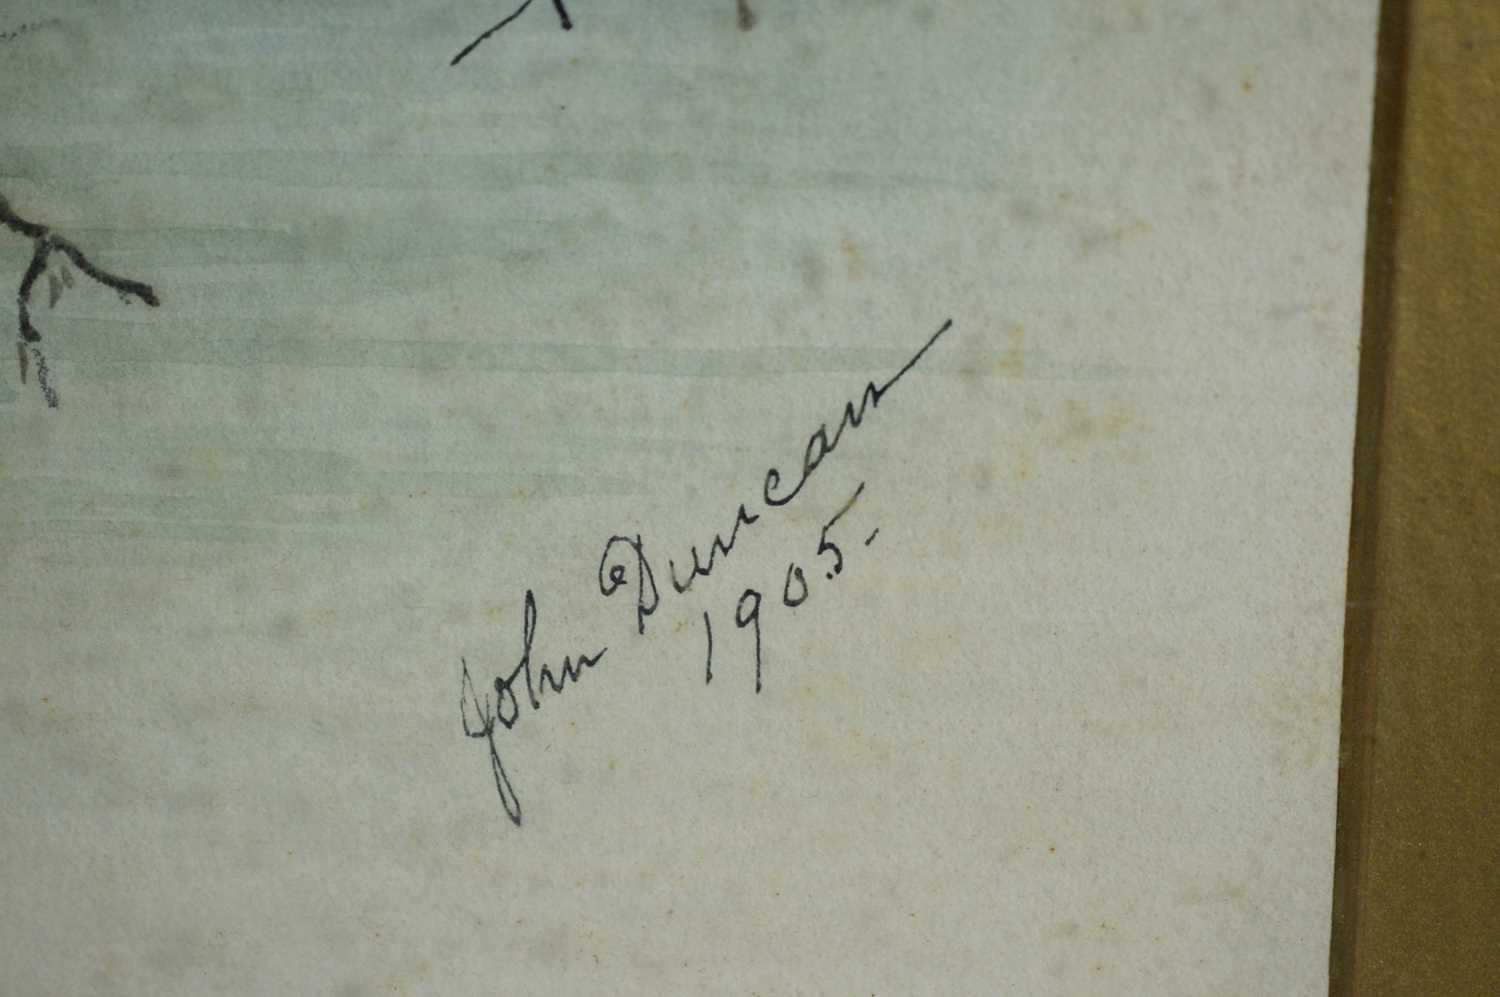 John Duncan
1905-